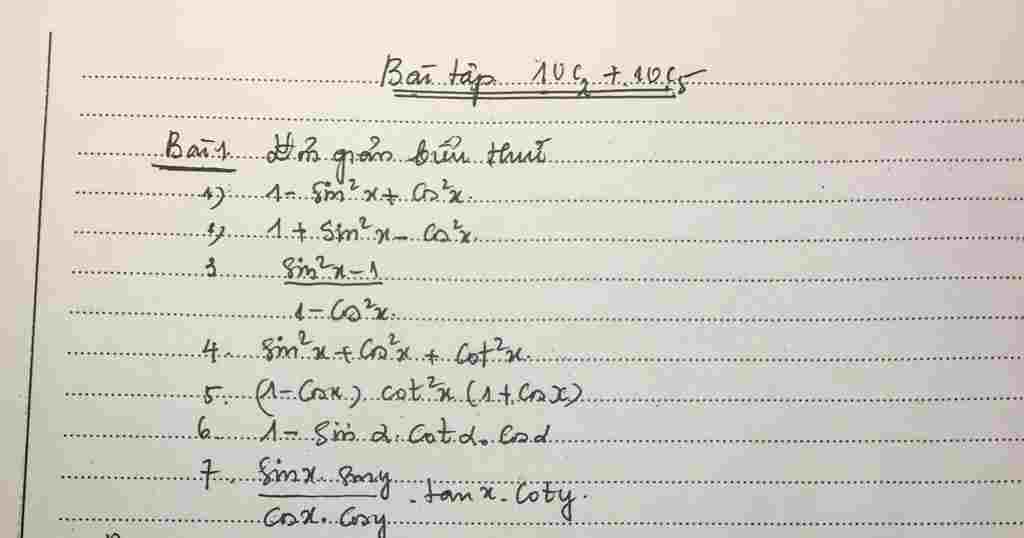 Bài tập 10C2 + 10C5
Bài 1 Đơn giản biểu thức
1) 1 - sin²x + cos²x.
2) 1 + sin²x - cos²x.
3 sin²x - 1
1 - cos²x.
4. sin²x + cos²x + cot²x.
5. (1 - cosx) cot²x (1 + cosx)
6. 1 - sin α. cot α. cos α
7. sinx. siny
cosx. cosy . tanx. coty.